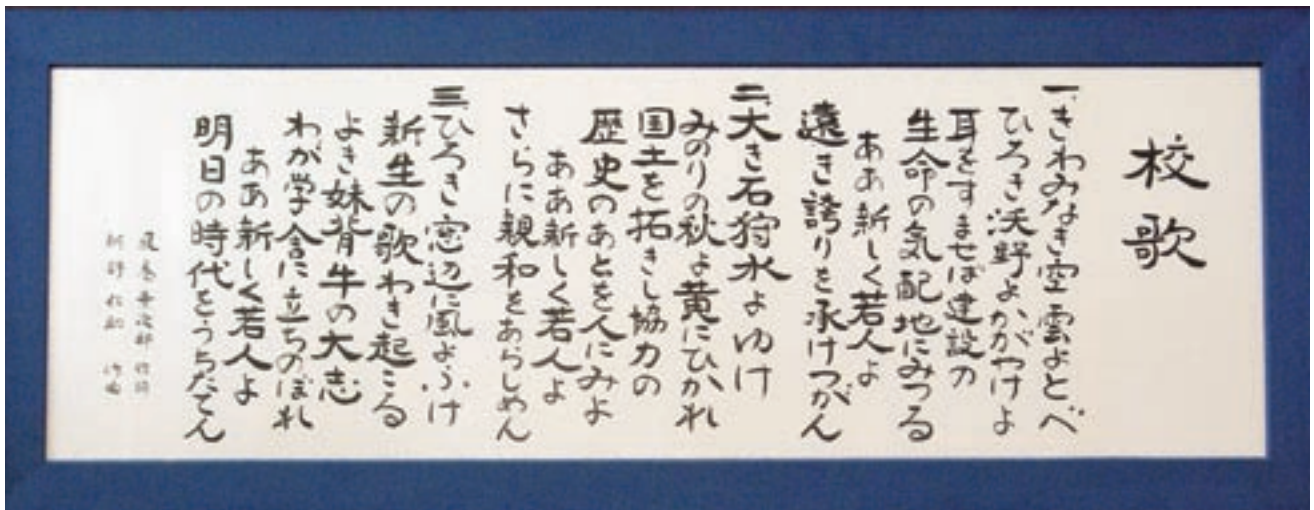 校歌
一、きわみなき空雲よとべ
ひろき沃野よかがやけよ
耳をすませば建設の
生命の気配地にみつる
ああ新しく若人よ
遠き誇りを承けつがん
二、大き石狩水よゆけ
みのりの秋よ黄にひかれ
国土を拓きし協力の
歴史のあとを人にみよ
ああ新しく若人よ
さらに親和をあらしめん
三、ひろき窓辺に風よふけ
新生の歌わき起こる
よき妹背牛の大志
わが学舎に立ちのぼれ
ああ新しく若人よ
明日の時代をうちたてん
作詞
作曲